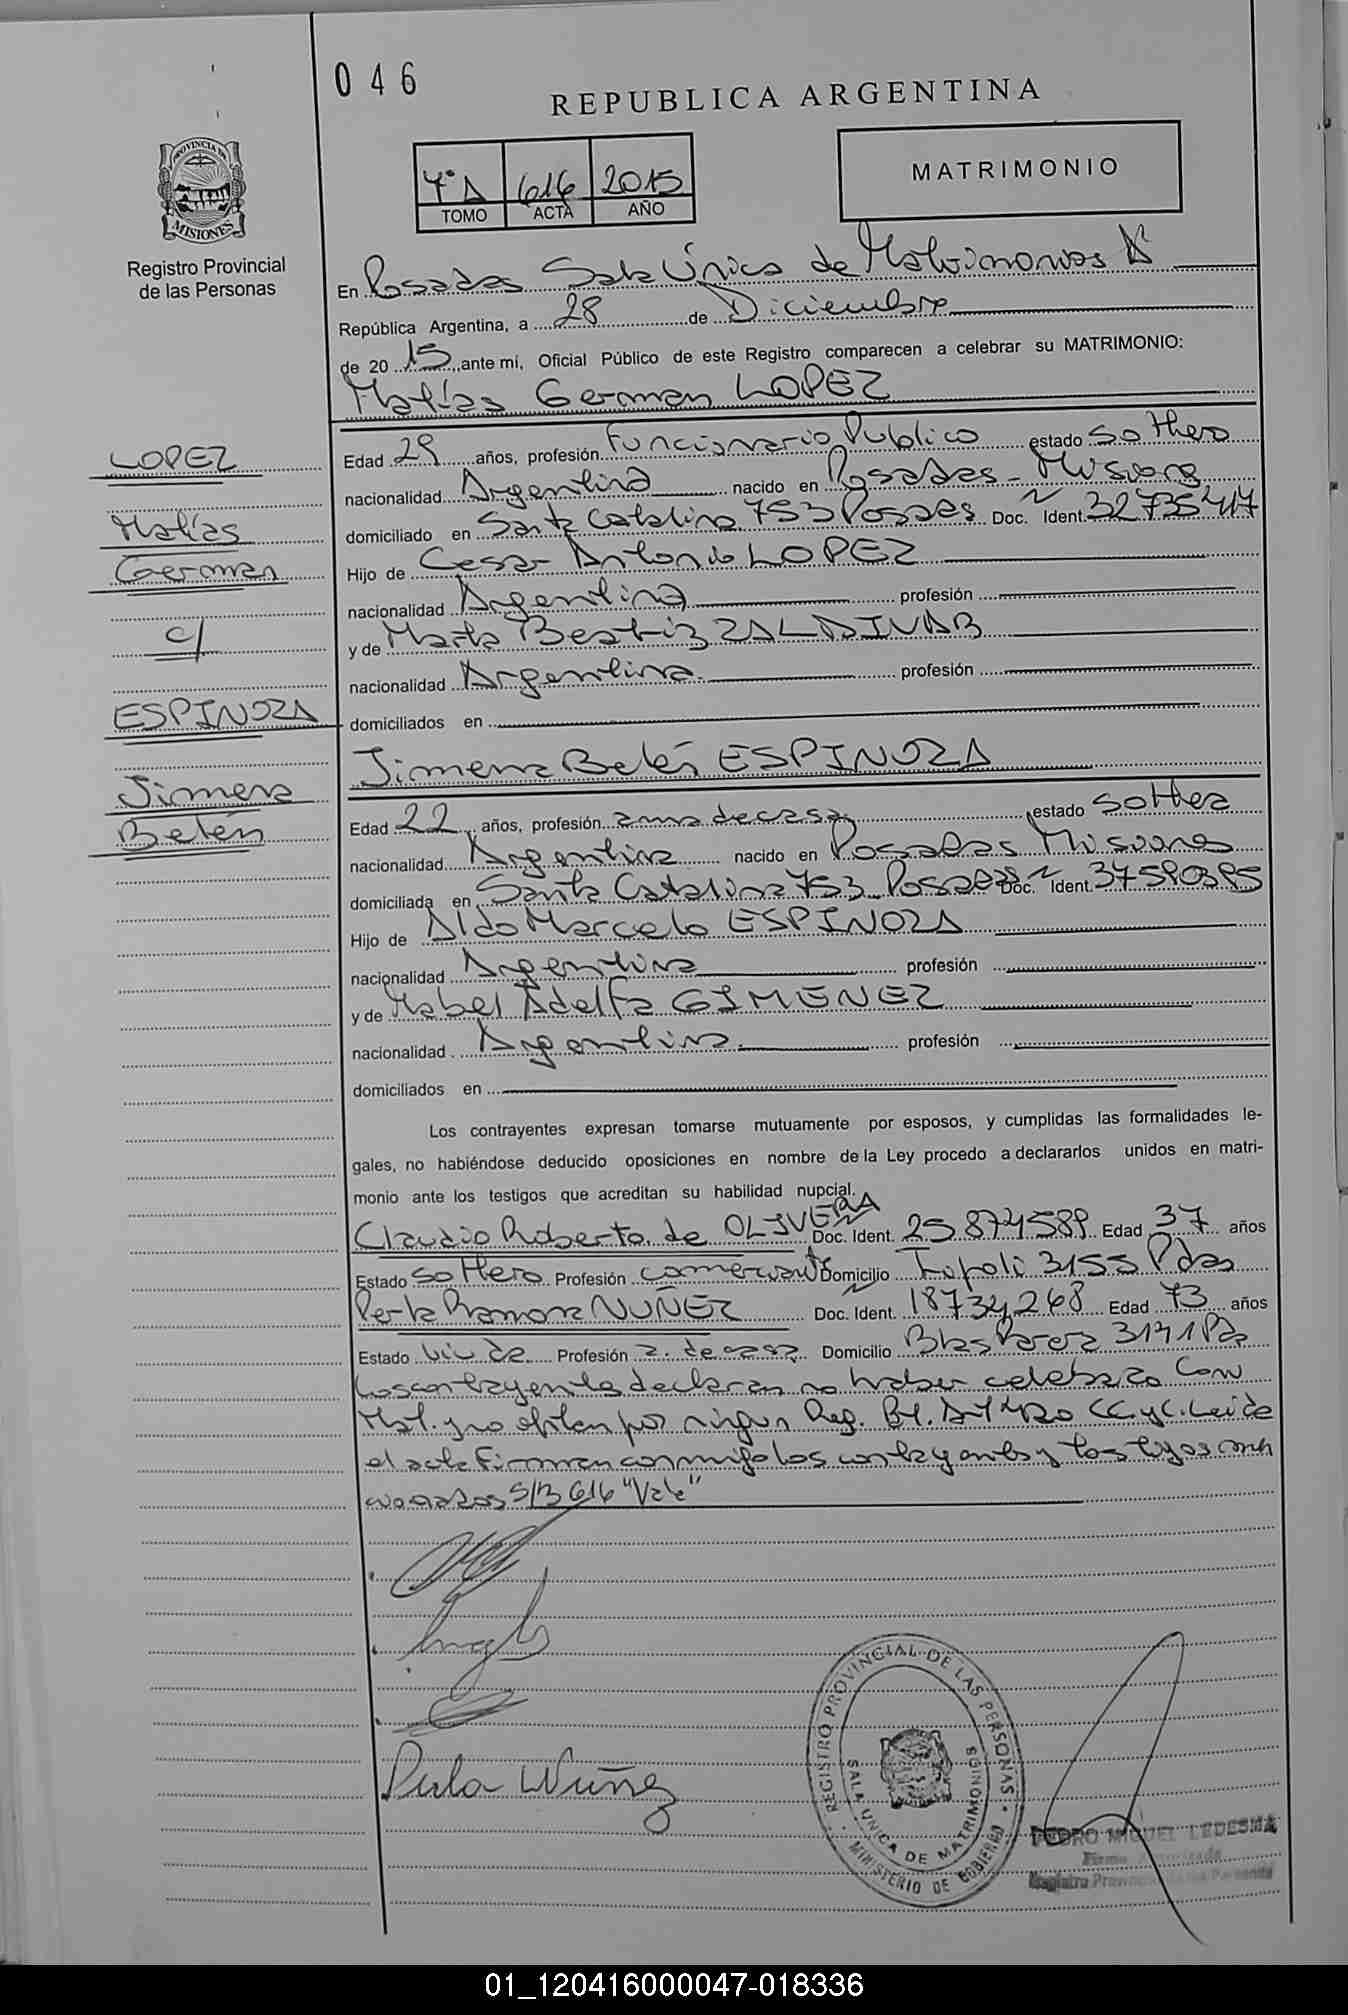 046
REPUBLICA ARGENTINA
PROVINCIA DE
MISIONES
Registro Provincial
de las Personas
4° A 616 2015
TOMO ACTA AÑO
MATRIMONIO
En Posadas Sala Única de Matrimonios
República Argentina, a 28 de Diciembre
de 2015 ante mí, Oficial Público de este Registro comparecen a celebrar su MATRIMONIO:
Matías German LOPEZ
LOPEZ
Matías
German
c/
ESPINOZA
Jimena
Belén
Edad 29 años, profesión Funcionario Publico estado soltero
nacionalidad Argentina nacido en Posadas - Misiones
domiciliado en Santa Catalina 753 Posadas Doc. Ident. 32735417
Hijo de Cesar Antonio LOPEZ
nacionalidad Argentina profesión
y de Marta Beatriz ZALDIVAR
nacionalidad Argentina profesión
domiciliados en
Jimena Belén ESPINOZA
Edad 22 años, profesión ama de casa estado soltera
nacionalidad Argentina nacido en Posadas Misiones
domiciliada en Santa Catalina 753 Posadas Doc. Ident. 37590395
Hijo de Aldo Marcelo ESPINOZA
nacionalidad Argentina profesión
y de Mabel Adelfa GIMENEZ
nacionalidad Argentina profesión
domiciliados en
Los contrayentes expresan tomarse mutuamente por esposos, y cumplidas las formalidades le-
gales, no habiéndose deducido oposiciones en nombre de la Ley procedo a declararlos unidos en matri-
monio ante los testigos que acreditan su habilidad nupcial.
Claudio Roberto de OLIVERA Doc. Ident. 25.874589 Edad 37 años
Estado soltero Profesión comerciante Domicilio Tripoli 3155 Pdas
Perla Ramona NUÑEZ Doc. Ident. 18734268 Edad 73 años
Estado viuda Profesión a. de casa Domicilio Blas Parera 3141 Pds
Los contrayentes declaran no haber celebrado Conv
Mat. y no optan por ningun Reg. 420 CC.yC. Leida
el acta Firman conmigo los contrayentes y los tgos
S/B 616 "Vale"
Perla Nuñez
REGISTRO PROVINCIAL DE LAS PERSONAS
SALA UNICA DE MATRIMONIOS
MINISTERIO DE GOBIERNO
PEDRO MIGUEL LEDESMA
Firma Autorizada
Registro Provincial de las Personas
01_120416000047-018336